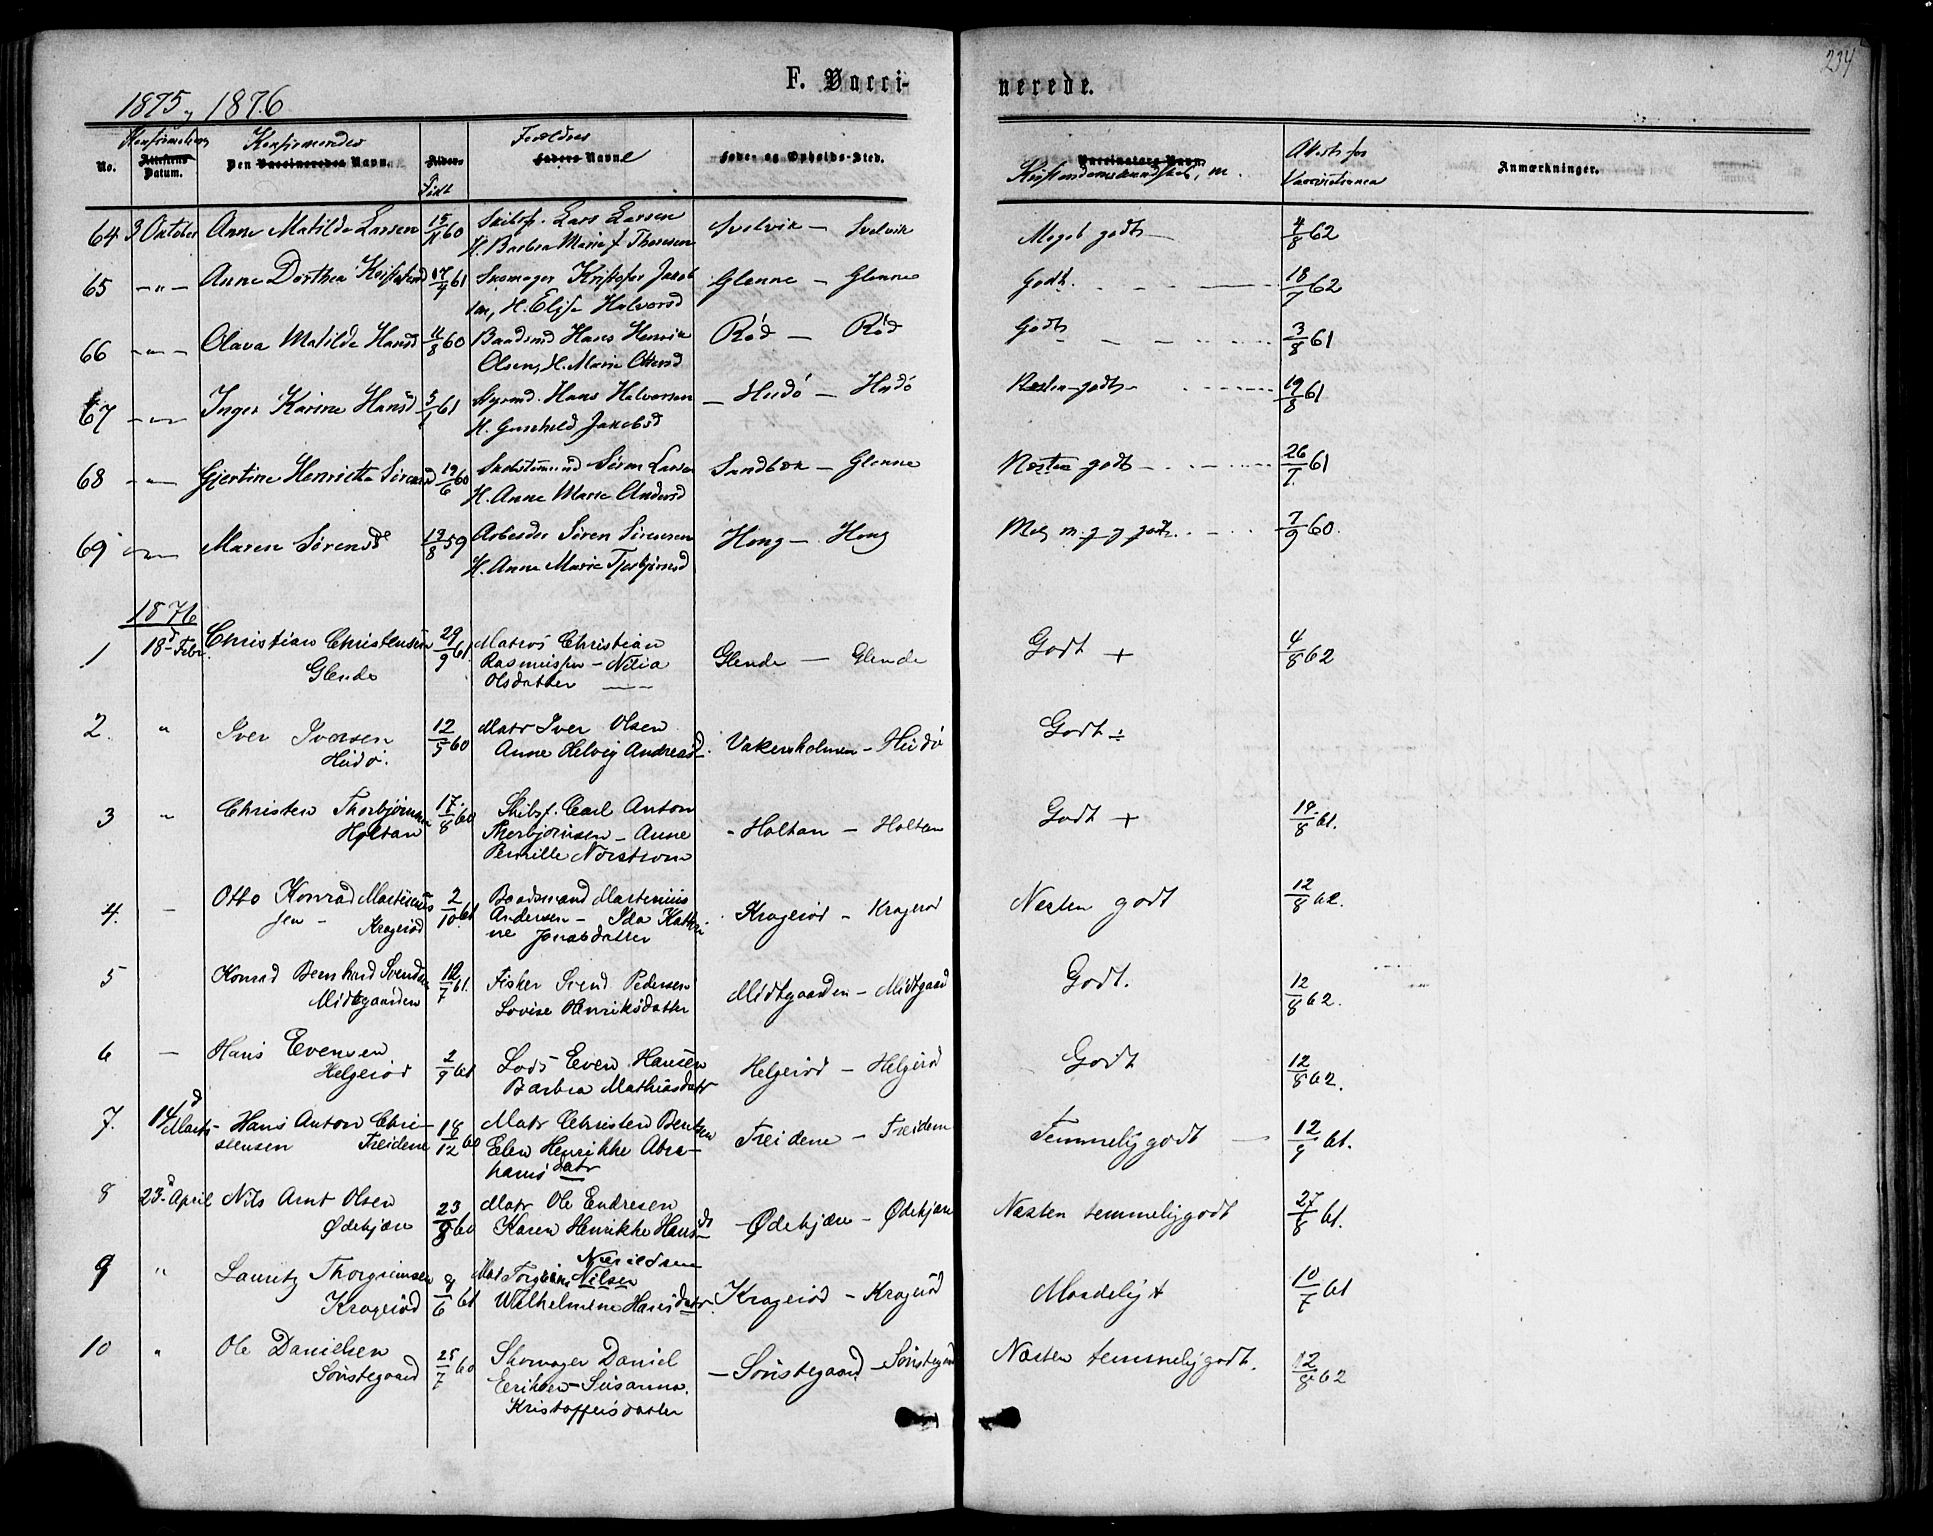 234
F. Vacci-
nerede.
1875, 1876
Konfirmations
No.
Attestens Datum.
Konfirmandes
Den Vaccineredes Navn.
Alder.
Født
Forældres
Faders Navne
Føde- og Opholds-Sted.
Vaccinators Navn
Attest for
Vaccinationen
Anmærkninger.
64 3 Oktober Anne Matilde Larsen 15/11 60 Skibsf. Lars Larsen Svelvik — Svelvik Meget godt 4/8 62
H. Barbra Marie f. Thoresen
65 —"— Anne Dorthea Kristofersd 17/4 61 Skomager Kristofer Jakob Glenne — Glenne Godt. 18/7 62
sen, H. Elise Halvorsd
66 —"— Olava Matilde Hansd 11/8 60 Baadsmd Hans Henrik Rød — Rød Godt 3/8 61
Olsen, H. Marie Ottersd
67 —"— Inger Karine Hansd 5/1 61 Styrmd. Hans Halvorsen — Hudø — Hudø Næsten godt 19/8 61
H. Gunhild Jakobsd
68 —"— Gjertine Henriette Sørensd 19/6 60 Søren Larsen Sandbæk — Glenne Næsten godt 26/7 61
H. Anne Marie Andersd
69 —"— Maren Sørensd 19/8 59 Arbeider Søren Sørensen Houg — Houg 7/9 60.
H. Anne Marie Thorbjørnsd
1876
1 18d Febr. Christian Christensen 29/9 61. Matros Christian Glende — Glende Godt + 4/8 62
Glende Rasmussen — Nilia
Olsdatter
2. " Iver Iversen 12/5 60 Matr Iver Olsen Vakerholmen — Hudø Godt ÷
Hudø. Anne Helvig Andreasd
3 " Christen Thorbjørnsen 17/8 60 Skibsf. Carl Anton — Holtan — Holtan Godt + 19/8 61.
Holtan Thorbjørnsen — Anne
Pernille Norstrom
4. — Otto Konrad Martinius 2/10 61 Baadsmand Martinius Krageröd — Krageröd Næsten godt 12/8 62.
sen — Krageröd Andersen — Ida Kathri
ne Jonasdatter
5 Konrad Bernhard Svendsen 12/7 61. Fisker Svend Pedersen Midtgaarden — Midtgaard Godt. 12/8 62.
Midtgaarden Lovise Henriksdatter
6 — Hans Evensen 2/9 61 Lods Even Hansen Helgeröd — Helgeröd Godt 12/8 62.
Helgeröd Barbra Mathiasdatr
7. 14d Marts — Hans Anton Chri- 18/12 60 Matr Christen Bentsen Treidene — Treidene Temmelig godt — 12/9 61.
stensen Treidene Elen Henrikke Abra-
hams datr
8 23d April Nils Arnt Olsen 23/8 60 Matr Ole Endresen — Ødekjær — Ødekjær Næsten temmelig godt 27/8 61.
Ødekjær Karen Henrikke Hansd
9 " Lauritz Thorgrimsen 9/6 61 Mat Torgrim Nilsen Krageröd — Krageröd Maadeligt 10/7 61
Krageröd Wilhelmine Hansdatr.
10 " Ole Danielsen 25/7 60 Skomager Daniel — Sönstegaard — Sönstegaard Næsten temmelig godt. 12/8 62
Sönstegaard Eriksen — Susanna
Kristoffersdatter